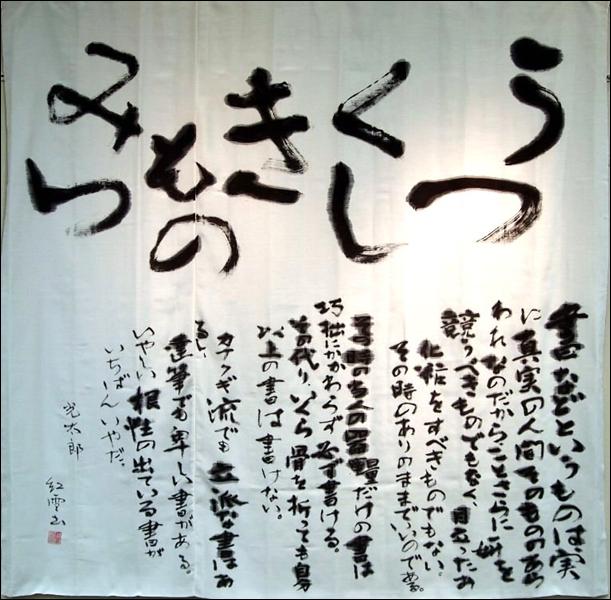 うつ
くし
き
もの
みつ
書などというものは、実
に真実の人間そのもののあら
われなのだからことさらに妍を
競うべきものでもなく、目立ったお
化粧をすべきものでもない。
その時のありのままでいいのである。
その時の自分の器量だけの書は
巧拙にかかわらず必ず書ける。
その代り、いくら骨を折っても自分
以上の書は書けない。
カナクギ流でも立派な書はあ
るし、
達筆でも卑しい書がある。
いやしい根性の出ている書が
いちばんいやだ。
光太郎
紅雲